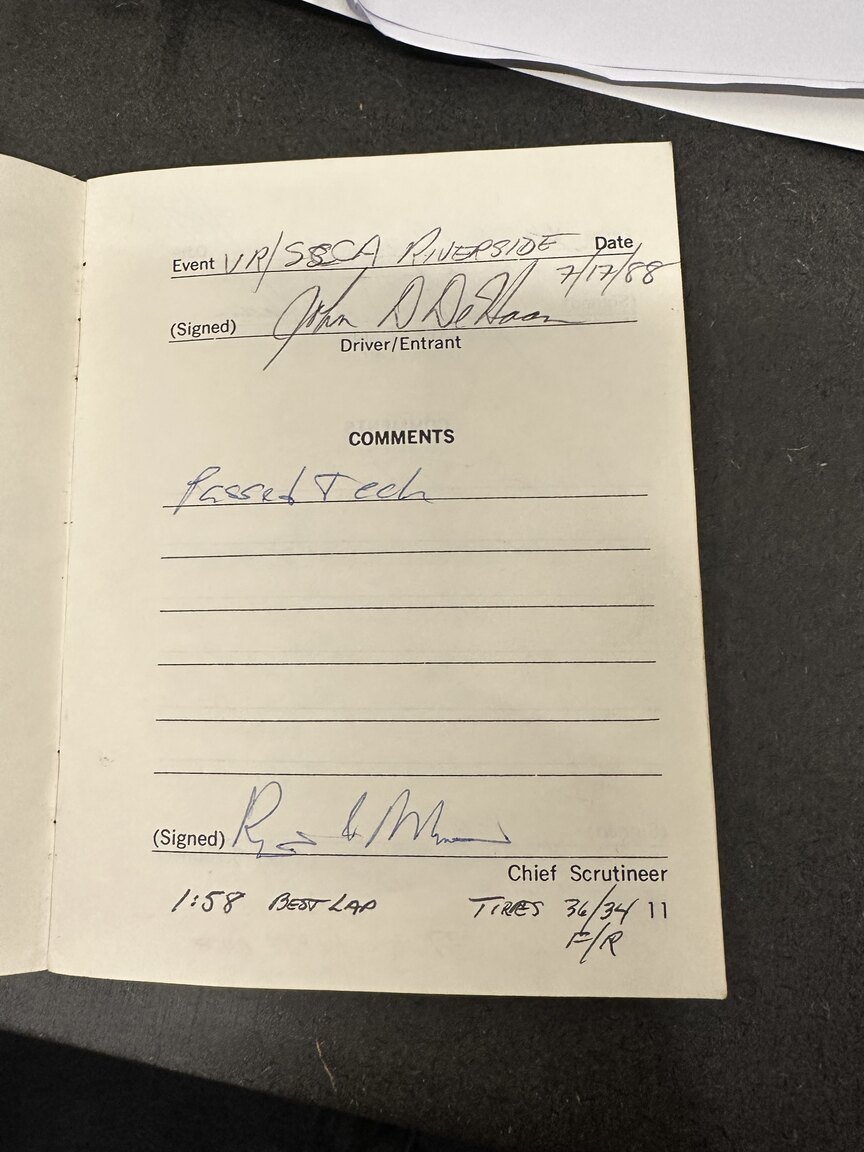 Event VR/SSCA RIVERSIDE Date
7/17/88
(Signed) John D DeHaan
Driver/Entrant
COMMENTS
Passed Tech
(Signed)
Chief Scrutineer
1:58 BEST LAP TIRES 36/34 11
F/R